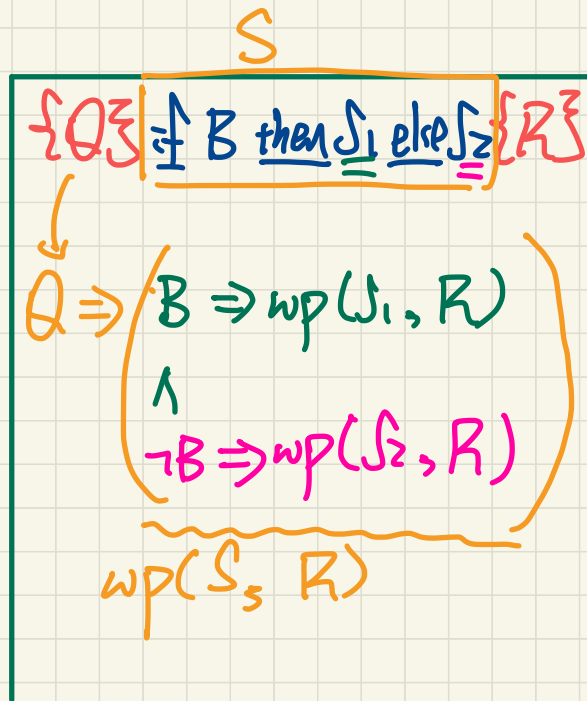 S
{Q} if B then S₁ else S₂ {R}
Q ⇒ ( B ⇒ wp(S₁, R)
∧
¬B ⇒ wp(S₂, R) )
wp(S, R)